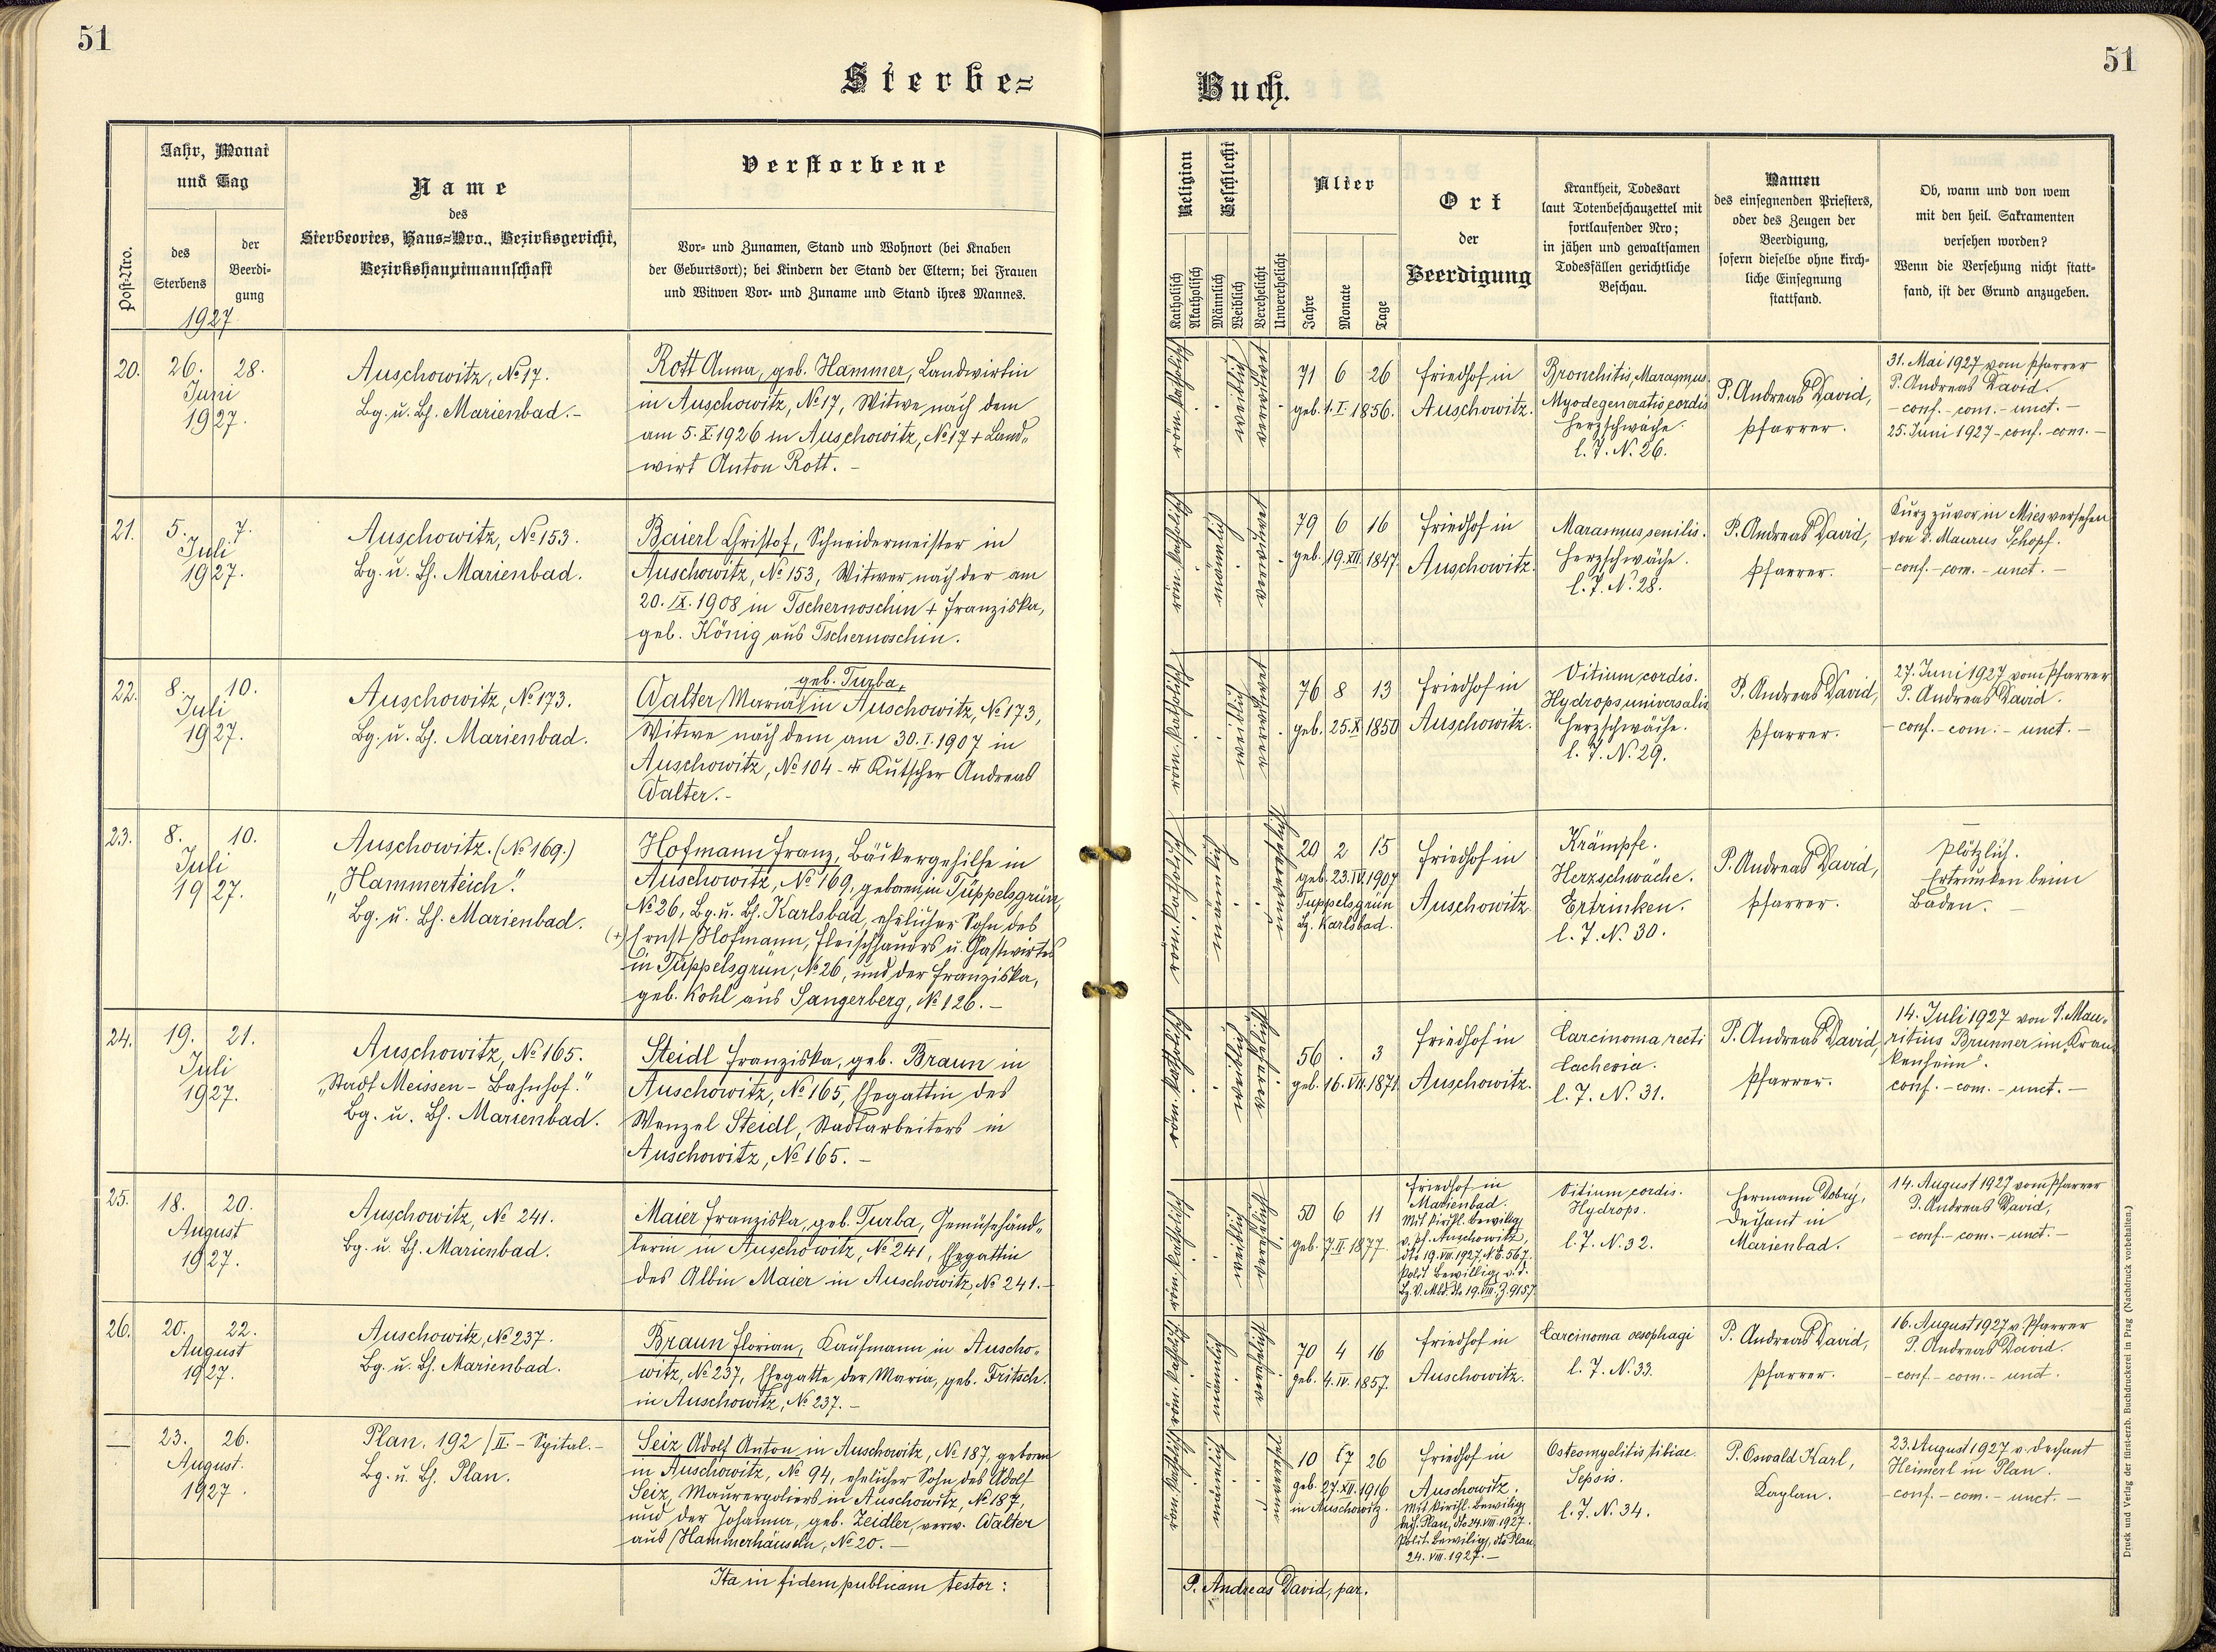 51
51
Sterbe=
Buch.
Post-Nro.
Jahr, Monat
und Tag
des
Sterbens
der
Beerdi-
gung
1927
Name
des
Sterbeortes, Haus=Nro., Bezirksgericht,
Bezirkshauptmannschaft
Verstorbene
Vor- und Zunamen, Stand und Wohnort (bei Knaben
der Geburtsort); bei Kindern der Stand der Eltern; bei Frauen
und Witwen Vor- und Zuname und Stand ihres Mannes.
Religion
Katholisch
Akatholisch
Geschlecht
Männlich
Weiblich
Verehelicht
Unverehelicht
Alter
Jahre
Monate
Tage
Ort
der
Beerdigung
Krankheit, Todesart
laut Totenbeschauzettel mit
fortlaufender Nro;
in jähen und gewaltsamen
Todesfällen gerichtliche
Beschau.
Namen
des einsegnenden Priesters,
oder des Zeugen der
Beerdigung,
sofern dieselbe ohne kirch-
liche Einsegnung
stattfand.
Ob, wann und von wem
mit den heil. Sakramenten
versehen worden?
Wenn die Versehung nicht statt-
fand, ist der Grund anzugeben.
20.
26. 28.
Juni
1927.
Auschowitz, No 17.
Bg. u. Bh. Marienbad.-
Rott Anna, geb. Hammer, Landwirtin
in Auschowitz, No 17, Witwe nach dem
am 5.X.1926 in Auschowitz, No 17 + Land„
wirt Anton Rott. -
röm. katholisch
weiblich
verwitwet
71 6 26
geb. 1.I.1856.
Friedhof in
Auschowitz.
Bronchitis, Marasmus.
Myodegeneratio cordis
Herzschwäche.
l. J. N. 26.
P. Andreas David,
Pfarrer.
31. Mai 1927 vom Pfarrer
P. Andreas David.
- conf. - com. - unct. -
25. Juni 1927 - conf. - com. -
21.
5. 7.
Juli
1927.
Auschowitz, No 153.
Bg. u. Bh. Marienbad.
Baierl Christof, Schneidermeister in
Auschowitz, No 153, Witwer nach der am
20.IX.1908 in Tschernoschin + Franziska,
geb. König aus Tschernoschin.
röm. katholisch
männlich
verwitwet
79 6 16
geb. 19.XII.1847.
Friedhof in
Auschowitz.
Marasmus senilis.
Herzschwäche.
l. J. N. 28.
P. Andreas David,
Pfarrer.
Kurz zuvor in Mies versehen
von P. Maurus Schopf.
- conf. - com. - unct. -
22.
8. 10.
Juli
1927.
Auschowitz, No 173.
Bg. u. Bh. Marienbad.
geb. Turba,
Walter Maria in Auschowitz, No 173,
Witwe nach dem am 30.I.1907 in
Auschowitz, No 104 - + Kutscher Andreas
Walter.-
röm. katholisch
weiblich
verwitwet
76 8 13
geb. 25.X.1850
Friedhof in
Auschowitz.
Vitium cordis.
Hydrops universalis
Herzschwäche.
l. J. N. 29.
P. Andreas David,
Pfarrer.
27. Juni 1927 vom Pfarrer
P. Andreas David.
- conf. - com. - unct. -
23.
8. 10.
Juli
1927.
Auschowitz. (No 169.)
„Hammerteich".
Bg. u. Bh. Marienbad.
Hofmann Franz, Bäckergehilfe in
Auschowitz, No 169, geboren in Tüppelsgrün,
No 26, Bg. u. Bh. Karlsbad, ehelicher Sohn des
(+) Ernst Hofmann, Fleischhauers u. Gastwirtes
in Tüppelsgrün, No 26, und der Franziska,
geb. Kohl aus Sangerberg, No 126. -
röm. katholisch
männlich
unverehelicht
20 2 15
geb. 23.IV.1907
Tuppelsgrün
Bz. Karlsbad.
Friedhof in
Auschowitz.
Krämpfe.
Herzschwäche.
Ertrinken.
l. J. N. 30.
P. Andreas David,
Pfarrer.
Plötzlich.
Ertrunken beim
Baden. -
24.
19. 21.
Juli
1927.
Auschowitz, No 165.
„Stadt Meissen - Bahnhof."
Bg. u. Bh. Marienbad.
Steidl Franziska, geb. Braun in
Auschowitz, No 165, Ehegattin des
Wenzel Steidl, Stadtarbeiters in
Auschowitz, No 165. -
röm. katholisch
weiblich
verehelicht
56 . 3
geb. 16.VII.1871.
Friedhof in
Auschowitz.
Carcinoma recti
Cachexia.
l. J. N. 31.
P. Andreas David,
Pfarrer.
14. Juli 1927 von P. Mau„
ritius Brunner im „Kran
kenheim".
conf. - com. - unct. -
25.
18. 20.
August
1927.
Auschowitz, No 241.
Bg. u. Bh. Marienbad.
Maier Franziska, geb. Turba, Gemüsehänd„
lerin in Auschowitz, No 241, Ehegattin
des Albin Maier in Auschowitz, No 241.-
röm. katholisch
weiblich
verehelicht
50 6 11
geb. 7.II.1877.
Friedhof in
Marienbad.
Mit kirchl. Bewillig
v. Pf. Auschowitz,
dto 19.VIII.1927. N.E. 567.
Polit. Bewillig v. d.
Bz. V. Mbd. dto 19.VIII. Z. 9157.
Vitium cordis.
Hydrops.
l. J. N. 32.
Hermann Dobrý,
Dechant in
Marienbad.
14. August 1927 vom Pfarrer
P. Andreas David,
- conf. - com. - unct. -
26.
20. 22.
August
1927.
Auschowitz, No 237.
Bg. u. Bh. Marienbad.
Braun Florian, Kaufmann in Auscho„
witz, No 237, Ehegatte der Maria, geb. Fritsch.
in Auschowitz, No 237. -
röm. katholisch
männlich
verehelicht
70 4 16
geb. 4.IV.1857.
Friedhof in
Auschowitz.
Carcinoma oesophagi
l. J. N. 33.
P. Andreas David,
Pfarrer.
16. August 1927 v. Pfarrer
P. Andreas David.
- conf. - com. - unct.
—
23. 26.
August.
1927.
Plan. 192 / II. - Spital. -
Bg. u. Bh. Plan.
Seiz Adolf Anton in Auschowitz, No 187, geboren
in Auschowitz, No 94, ehelicher Sohn des Adolf
Seiz, Maurerpoliers in Auschowitz, No 187,
und der Johanna, geb. Zeidler, verw. Walter
aus Hammerhäuseln, No 20. -
röm. katholisch
männlich
unverehel.
10 7 26
geb. 27.XII.1916
in Auschowitz.
Friedhof in
Auschowitz.
Mit kirchl. Bewillig
Dech. Plan, dto 24.VIII.1927.
Polit. Bewillig, dto Plan
24.VIII.1927. -
Osteomyelitis tibiae.
Sepsis.
l. J. N. 34.
P. Oswald Karl,
Kaplan.
23. August 1927 v. Dechant
Heimerl in Plan.
- conf. - com. - unct. -
Ita in fidem publicam testor:
P. Andreas David, par.
Druck und Verlag der fürst-erzb. Buchdruckerei in Prag (Nachdruck vorbehalten.)